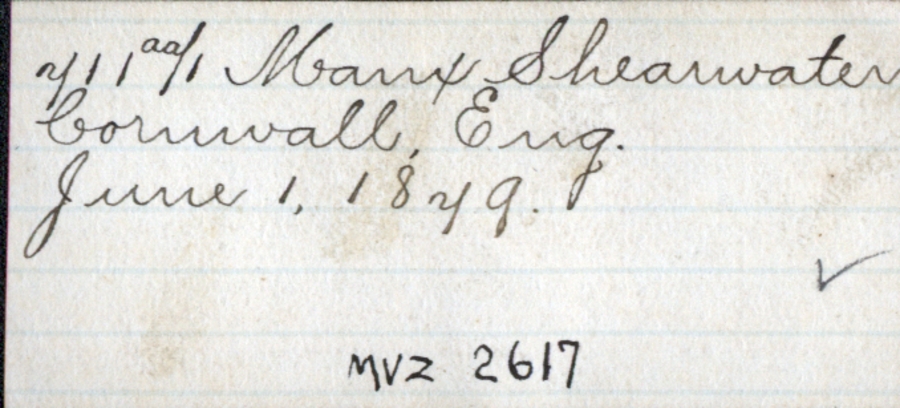 711aa/1 Manx Shearwater
Cornwall, Eng.
June 1, 1879.
✓
MVZ 2617